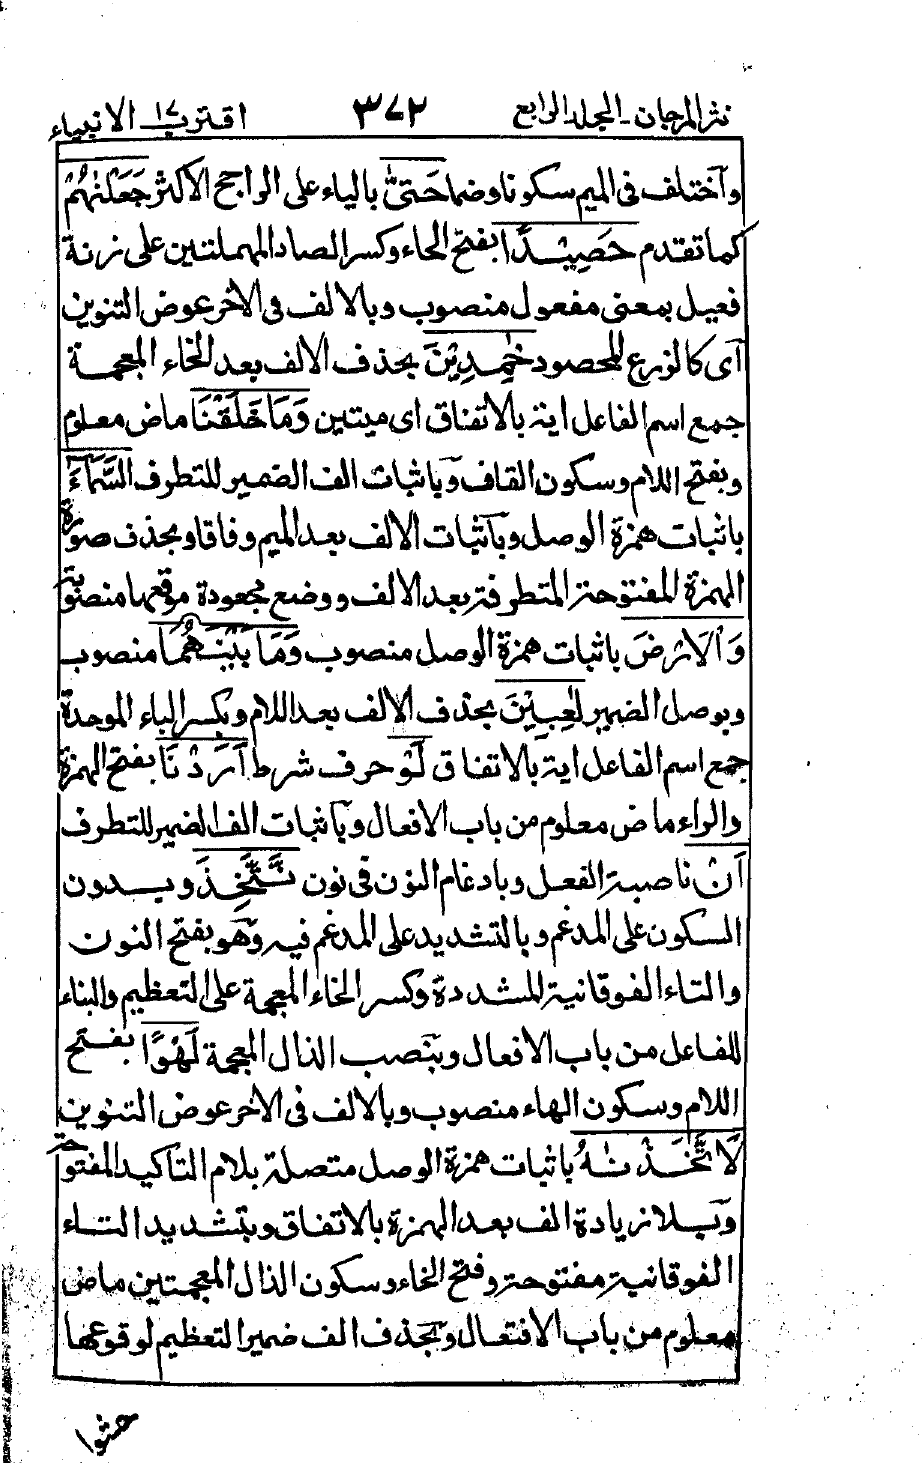 نثر المرجان ـ المجلد الرابع ٣٧٢ اقترب ١٧ الانبياء
وٱختلف فى الميم سكونا وضما حَتىّٰ بالياء على الراجح الاكثر جَعَلْنٰهُمْ
كما تقدم حَصِيْدًا بفتح الحاء وكسر الصاد المهملتين على زنة
فعيل بمعنى مفعول منصوب وبالالف فى الاخر عوض التنوين
آى كالزرع المحصود خٰمِدِيْنَ بحذف الالف بعد الخاء المعجمة
جمع اسم الفاعل اية بالاتفاق اى ميتين وَمَا خَلَقْنَا ماض معلوم
وبفتح اللام وسكون القاف وباثبات الف الضمير للتطرف السَّمَآءَ
باثبات همزة الوصل وبآثبات الالف بعد الميم وفاقا وبحذف صورة
الهمزة المفتوحة المتطرفة بعد الالف ووضع مجعودة موقعها منصوبة
وَالْاَرْضَ باثبات همزة الوصل منصوب وَمَا بَيْنَهُمَا منصوب
وبوصل الضمير لٰعِبِيْنَ بحذف الالف بعد اللام وبكسر الباء الموحدة
جمع اسم الفاعل اية بالاتفاق لَوْ حرف شرط اَرَدْنَا بفتح الهمزة
والراء ماض معلوم من باب الافعال وبآثبات الف الضمير للتطرف
اَنْ ناصبة الفعل وبادغام النون فى نون نَّتَّخِذَ وبدون
السكون على المدغم وبالتشديد على المدغم فيه وهو بفتح النون
والتاء الفوقانية المشددة وكسر الخاء المعجمة على التعظيم والبناء
للفاعل من باب الافعال وبنصب الذال المعجمة لَهْوًا بفتح
اللام وسكون الهاء منصوب وبالالف فى الاخر عوض التنوين
لَاتَّخَذْنٰهُ باثبات همزة الوصل متصلة بلام التاكيد المفتوحة
وبلا زيادة الف بعد الهمزة بالاتفاق وبتشديد التاء
الفوقانية مفتوحة وفتح الخاء وسكون الذال المعجمتين ماض
معلوم من باب الافتعال وبحذف الف ضمير التعظيم لوقوعها
حشوا